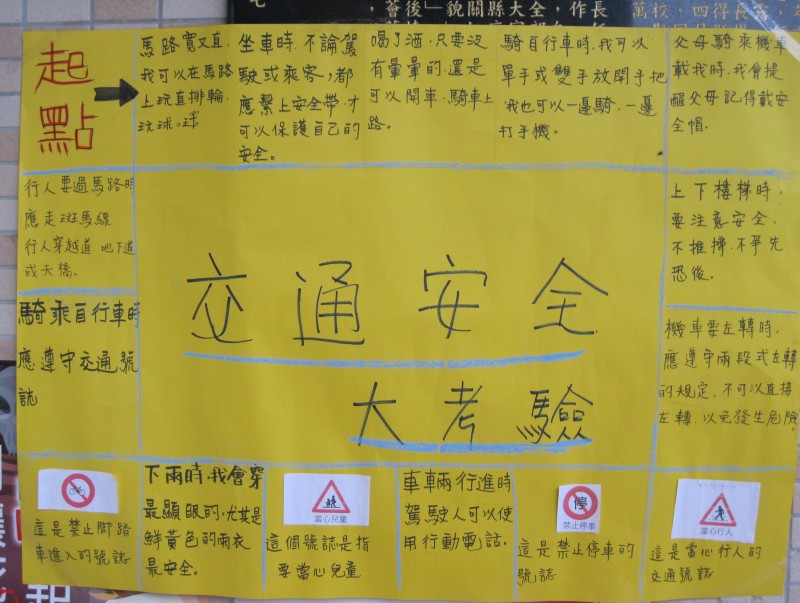 薈後」貌關縣大全，作長
萬校，四得長官，
起
點
馬路寬又直，
我可以在馬路
上玩直排輪、
汰球。球
坐車時，不論駕
駛或乘客，都
應繫上安全帶，才
可以保護自己的
安全。
喝了酒，只要沒
有暈暈的，還是
可以開車、騎車上
路。
騎自行車時，我可以
單手或雙手放開手把
我也可以一邊騎，一邊
打手機。
父母騎乘機車
載我時，我會提
醒父母記得戴安
全帽。
行人要過馬路時
應走斑馬線
行人穿越道、地下道
或天橋。
上下樓梯時，
要注意安全，
不推擠，不爭先
恐後。
交通安全
大考驗
騎乘自行車時
應遵守交通號
誌
機車要左轉時，
應遵守兩段式左轉
的規定，不可以直接
左轉，以免發生危險
這是禁止脚踏
車進入的號誌
下雨時，我會穿
最顯眼的，尤其是
鮮黃色的雨衣
最安全。
當心兒童
這個號誌是指
要當心兒童
車輛行進時
駕駛人可以使
用行動電話。
停
禁止停車
這是禁止停車的
號誌
當心行人
這是當心行人的
交通號誌